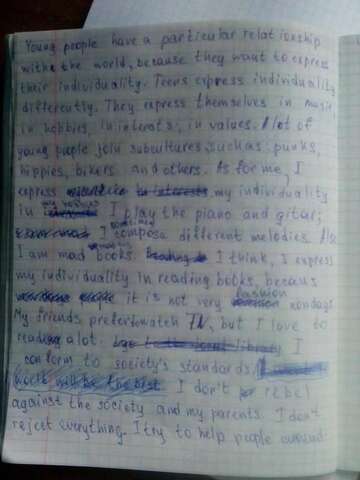 Young people have a particular relationship
with the world, because they want to express
their individuality. Teens express individuality
differently. They express themselves in music
in hobbies, in interests, in values. A lot of
young people join subcultures suchas: punks,
hippies, bikers and others. As for me, I
express my individuality
in my hobbies I play the piano and gitar;
I compose different melodies. Also
I am mad books. I think, I express
my individuality in reading books, becaus
it is not very fashion nondays
My friends prefer to watch TV, but I love to
reading a lot. I
conform to society's standards
I don't rebel
against the society and my parents. I don't
reject everything. I try to help people